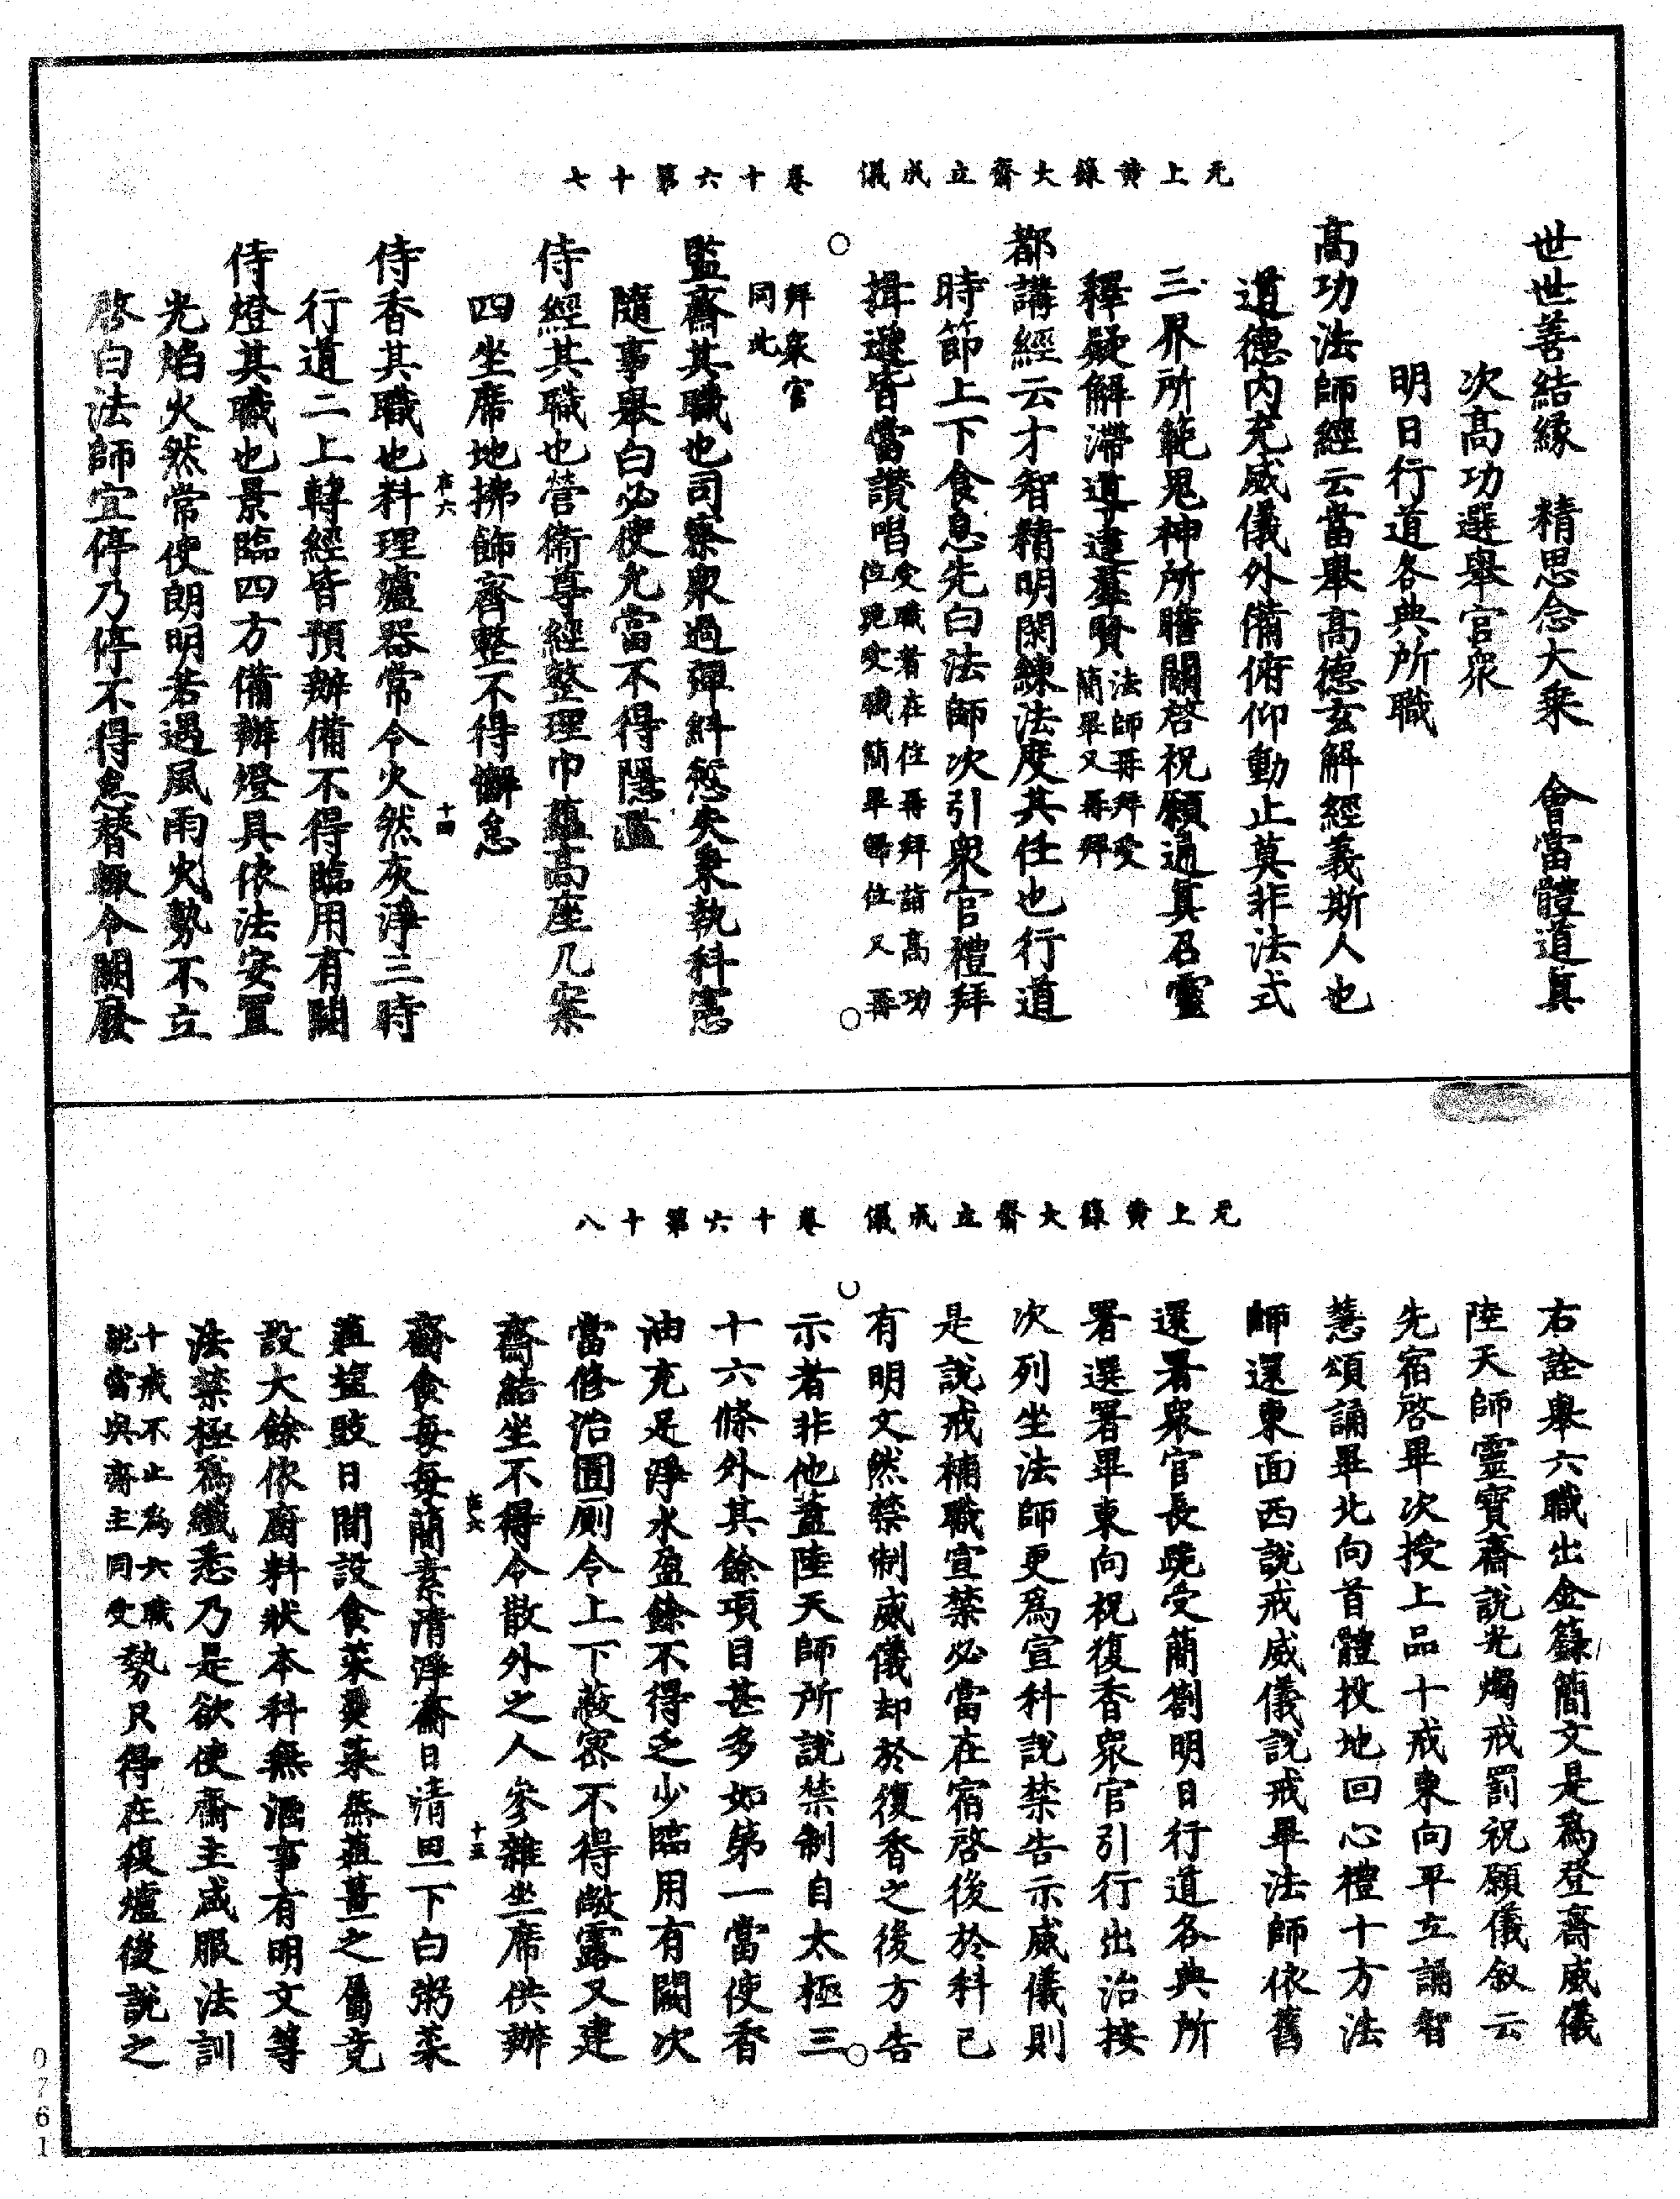 无上黃籙大齋立成儀　卷十六第十七
世世善結緣　精思念大乘　會當體道真
次高功選舉官衆
明日行道各典所職
高功法師經云當舉高德玄解經義斯人也
道德內充威儀外備俯仰動止莫非法式
三界所範鬼神所瞻關啓祝願通真召靈
釋疑解滯導達羣賢法師再拜受簡畢又再拜
都講經云才智精明閑練法度其任也行道
時節上下食息先白法師次引衆官禮拜
揖遜皆當讚唱受職者在位再拜詣高功位跪受職簡畢歸位又再
拜衆官同此
監齋其職也司察衆過彈糾愆失秉執科憲
隨事舉白必使允當不得隱濫
侍經其職也營衞尊經整理巾蘊高座几案
四坐席地拂飾齊整不得懈怠
在六　十四
侍香其職也料理爐器常令火然灰淨三時
行道二上轉經皆預辦備不得臨用有闕
侍燈其職也景臨四方備辦燈具依法安置
光焰火然常使朗明若遇風雨火勢不立
啓白法師宜停乃停不得怠替輙令闕廢
无上黃籙大齋立成儀　卷十六第十八
右詮舉六職出金籙簡文是爲登齋威儀
陸天師靈寶齋說光燭戒罰祝願儀叙云
先宿啓畢次授上品十戒東向平立誦智
慧頌誦畢北向首體投地回心禮十方法
師還東面西說戒威儀說戒畢法師依舊
還署衆官長跪受簡劄明日行道各典所
署選署畢東向祝復香衆官引行出治按
次列坐法師更爲宣科說禁告示威儀則
是說戒補職宣禁必當在宿啓後於科已
有明文然禁制威儀却於復香之後方告
示者非他蓋陸天師所說禁制自太極三
十六條外其餘項目甚多如第一當使香
油充足淨水盈餘不得乏少臨用有闕次
當修治圊厠令上下蔽密不得敞露又建
齋結坐不得令散外之人參雜坐席供辦
在六　十五
齋食每每蘭素清淨齋日清旦下白粥菜
葅𥂁豉日間設食菜羹菜蒸葅薑之屬竟
設大餘依廚料狀本科無酒事有明文等
法禁極爲纖悉乃是欲使齋主咸服法訓
十戒不止為六職說當與齋主同受勢只得在復爐後說之
0761